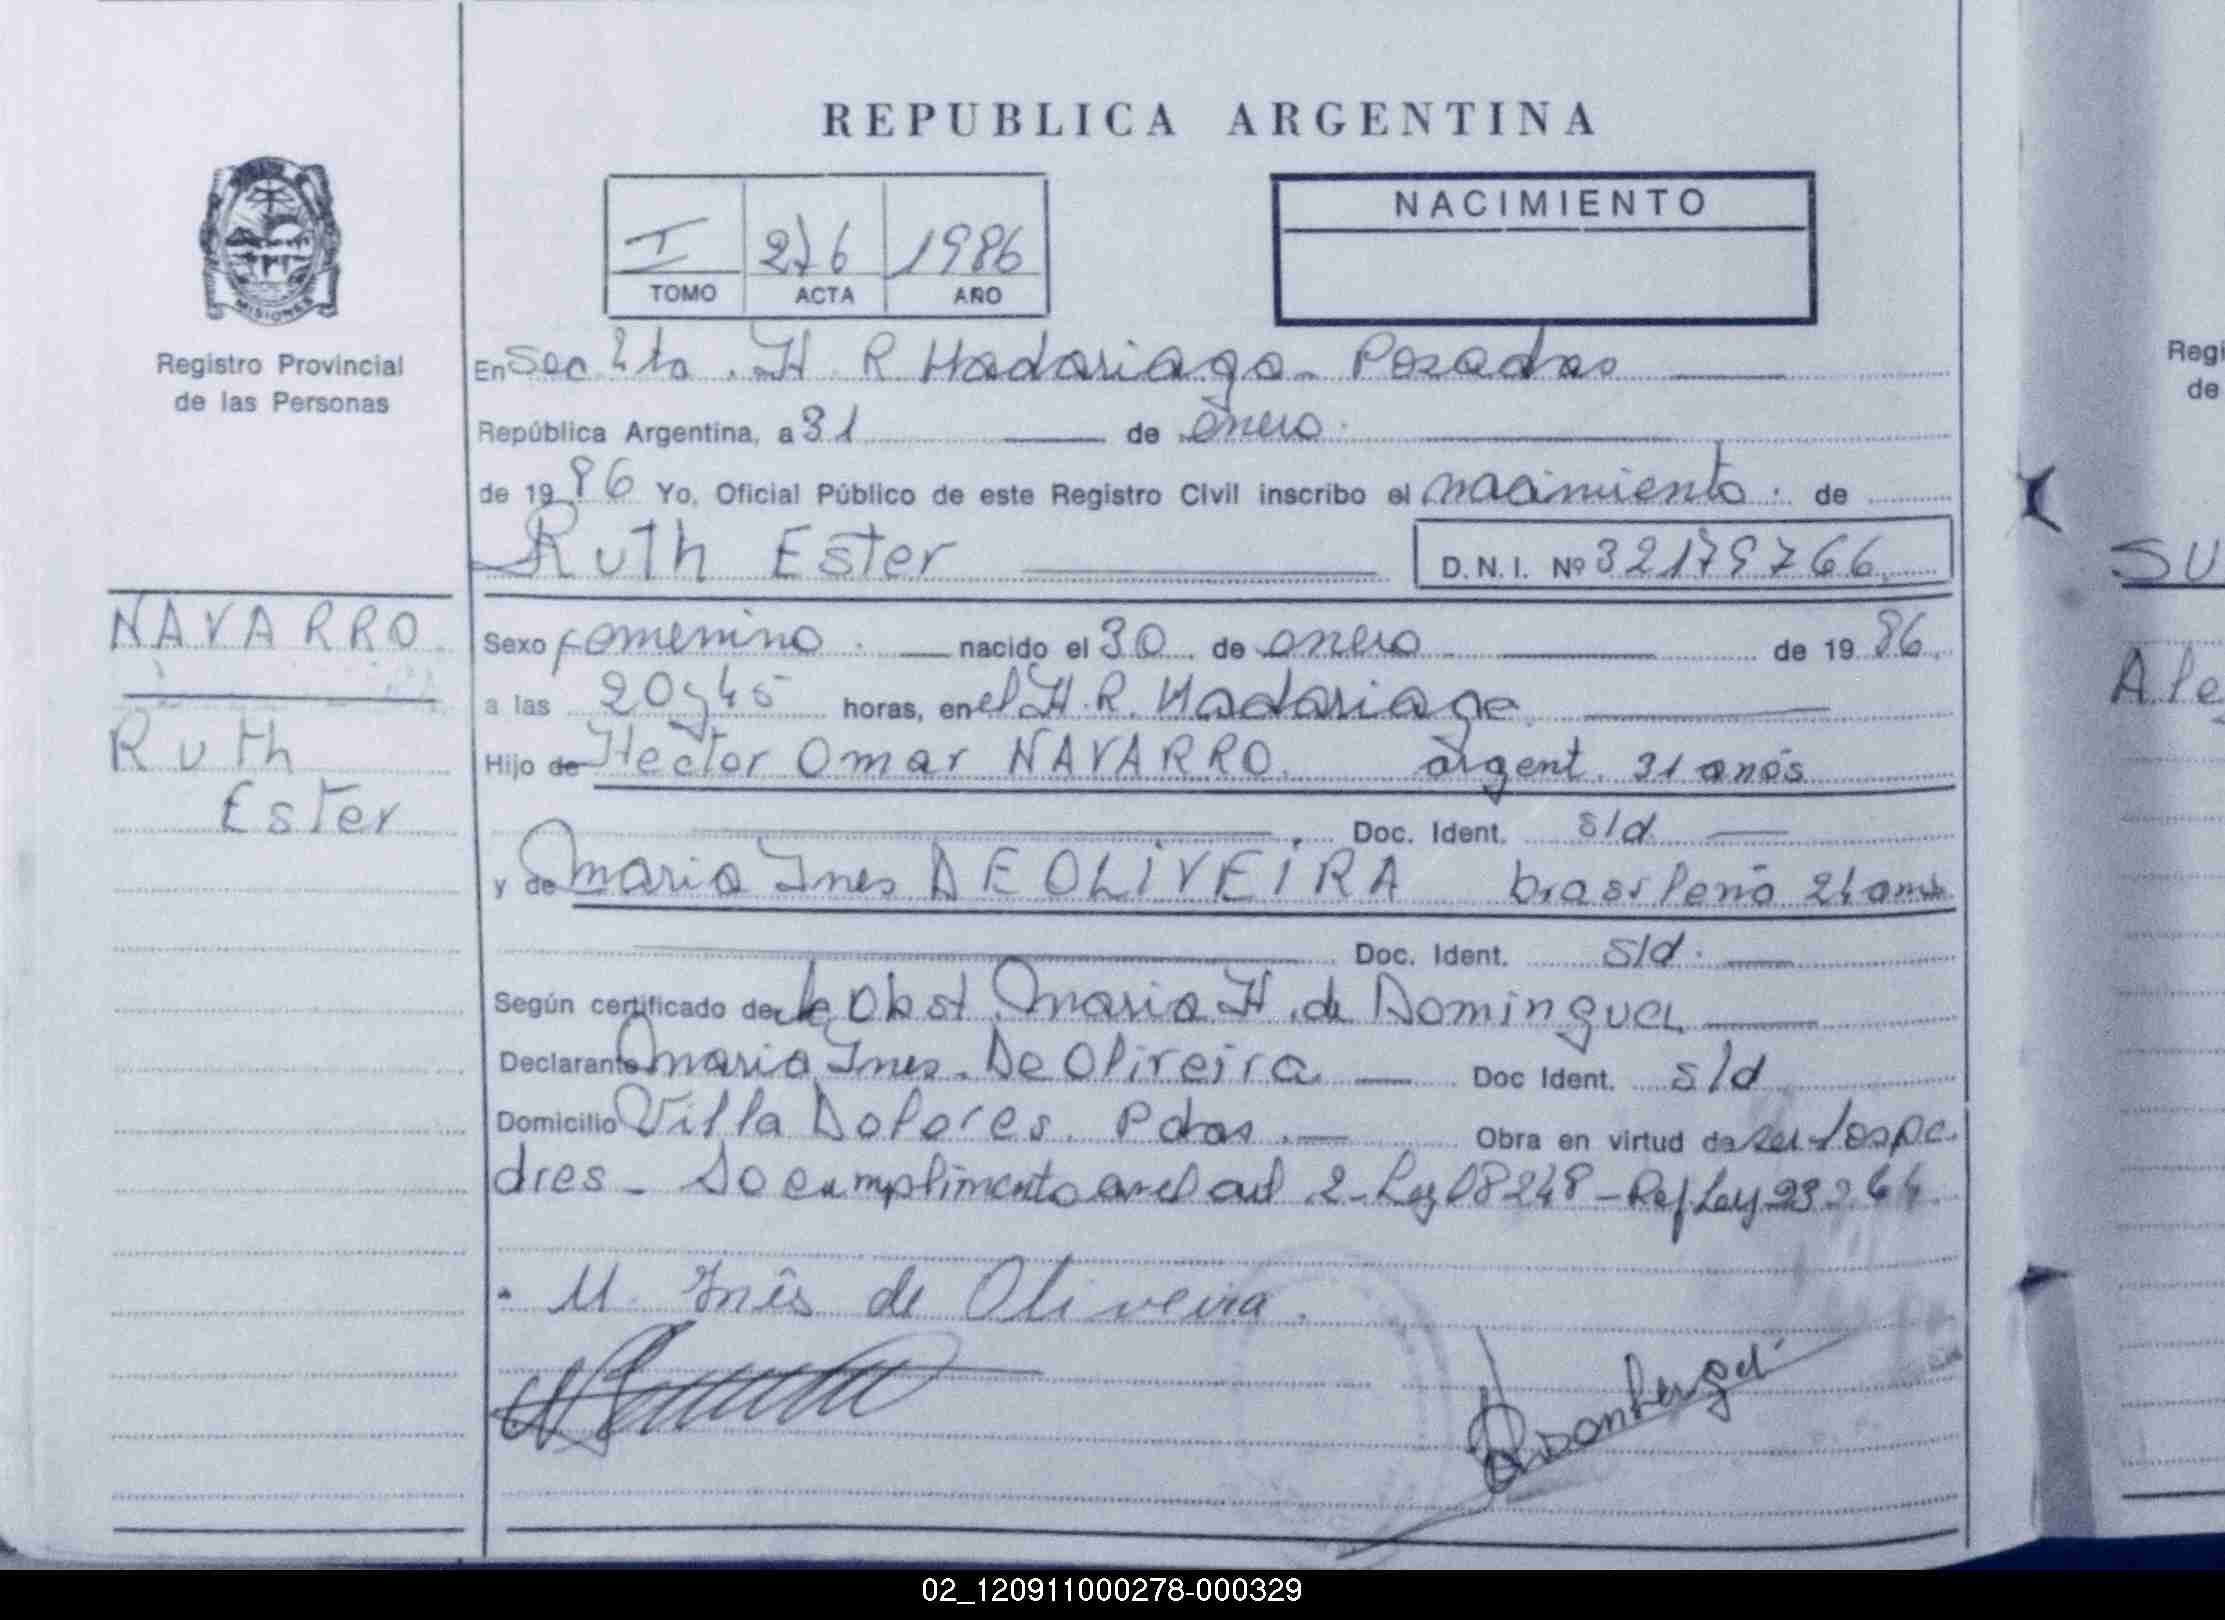 REPUBLICA ARGENTINA
NACIMIENTO
I 276 1986
TOMO ACTA AÑO
MISIONES
Registro Provincial
de las Personas
En Sec 2 ta. H. R Madariaga - Posadas
República Argentina, a 31 de enero
de 1986 Yo, Oficial Público de este Registro Civil inscribo el nacimiento de
Ruth Ester D.N.I. Nº 32179766
NAVARRO
Ruth
Ester
Sexo femenino nacido el 30 de enero de 1986
a las 20 y 45 horas, en el H. R. Madariaga
Hijo de Hector Omar NAVARRO argent. 31 anõs
Doc. Ident. s/d
y de Maria Ines DE OLIVEIRA brasileña 24
Doc. Ident. s/d
Según certificado de la Obst Maria H. de Dominguez
Declarante Maria Ines De Oliveira Doc Ident. s/d
Domicilio Villa Dolores. Pdas. Obra en virtud de ser los pa
dres - Ley 18248 - Ref Ley 23264
M. Inês de Oliveira.
Regi
de
SU
Ale
02_120911000278-000329